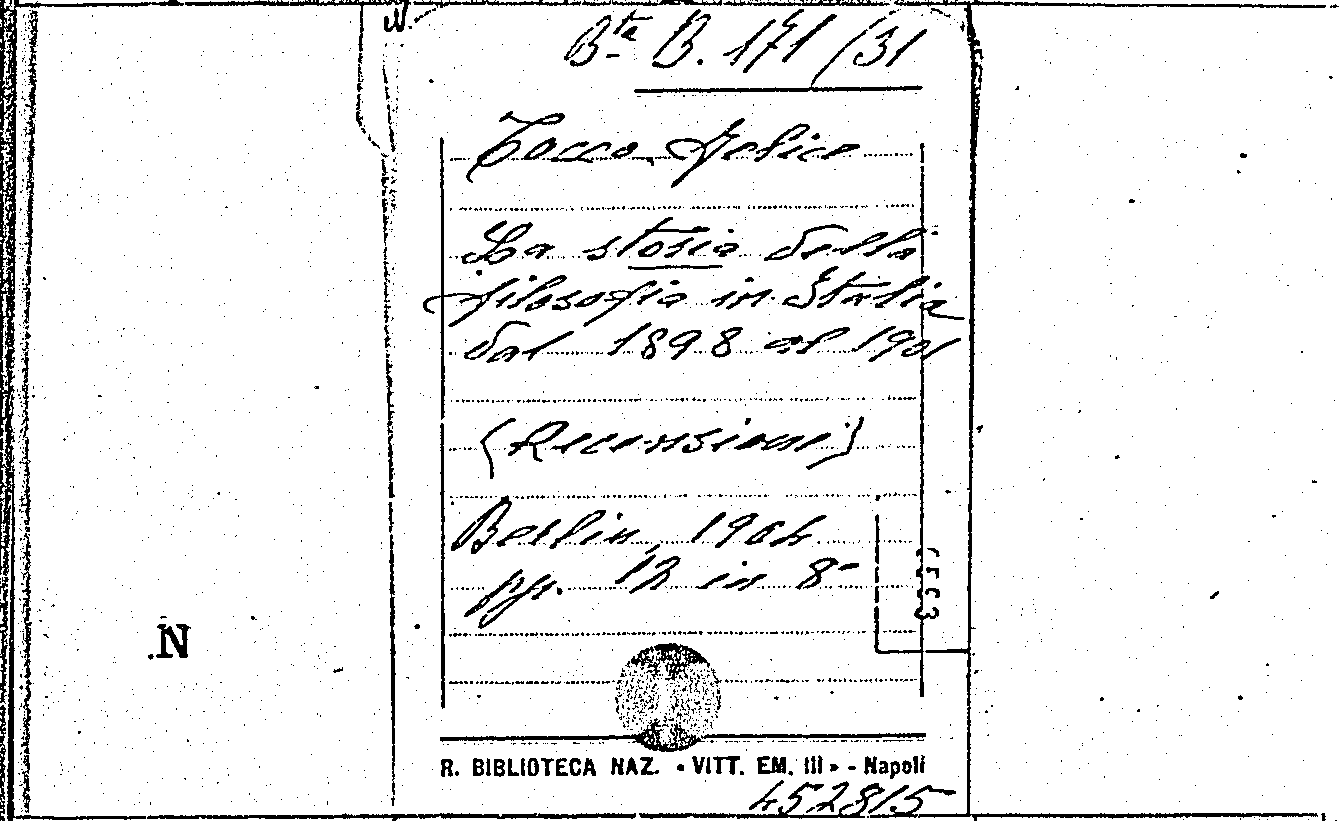 Bta B. 171/31
Tocco Felice
La storia della
filosofia in Italia
dal 1898 al 1901
(Recensione)
Berlin, 1904
pp. 12 in 8°
N
R. BIBLIOTECA NAZ. « VITT. EM. III » - Napoli
452815